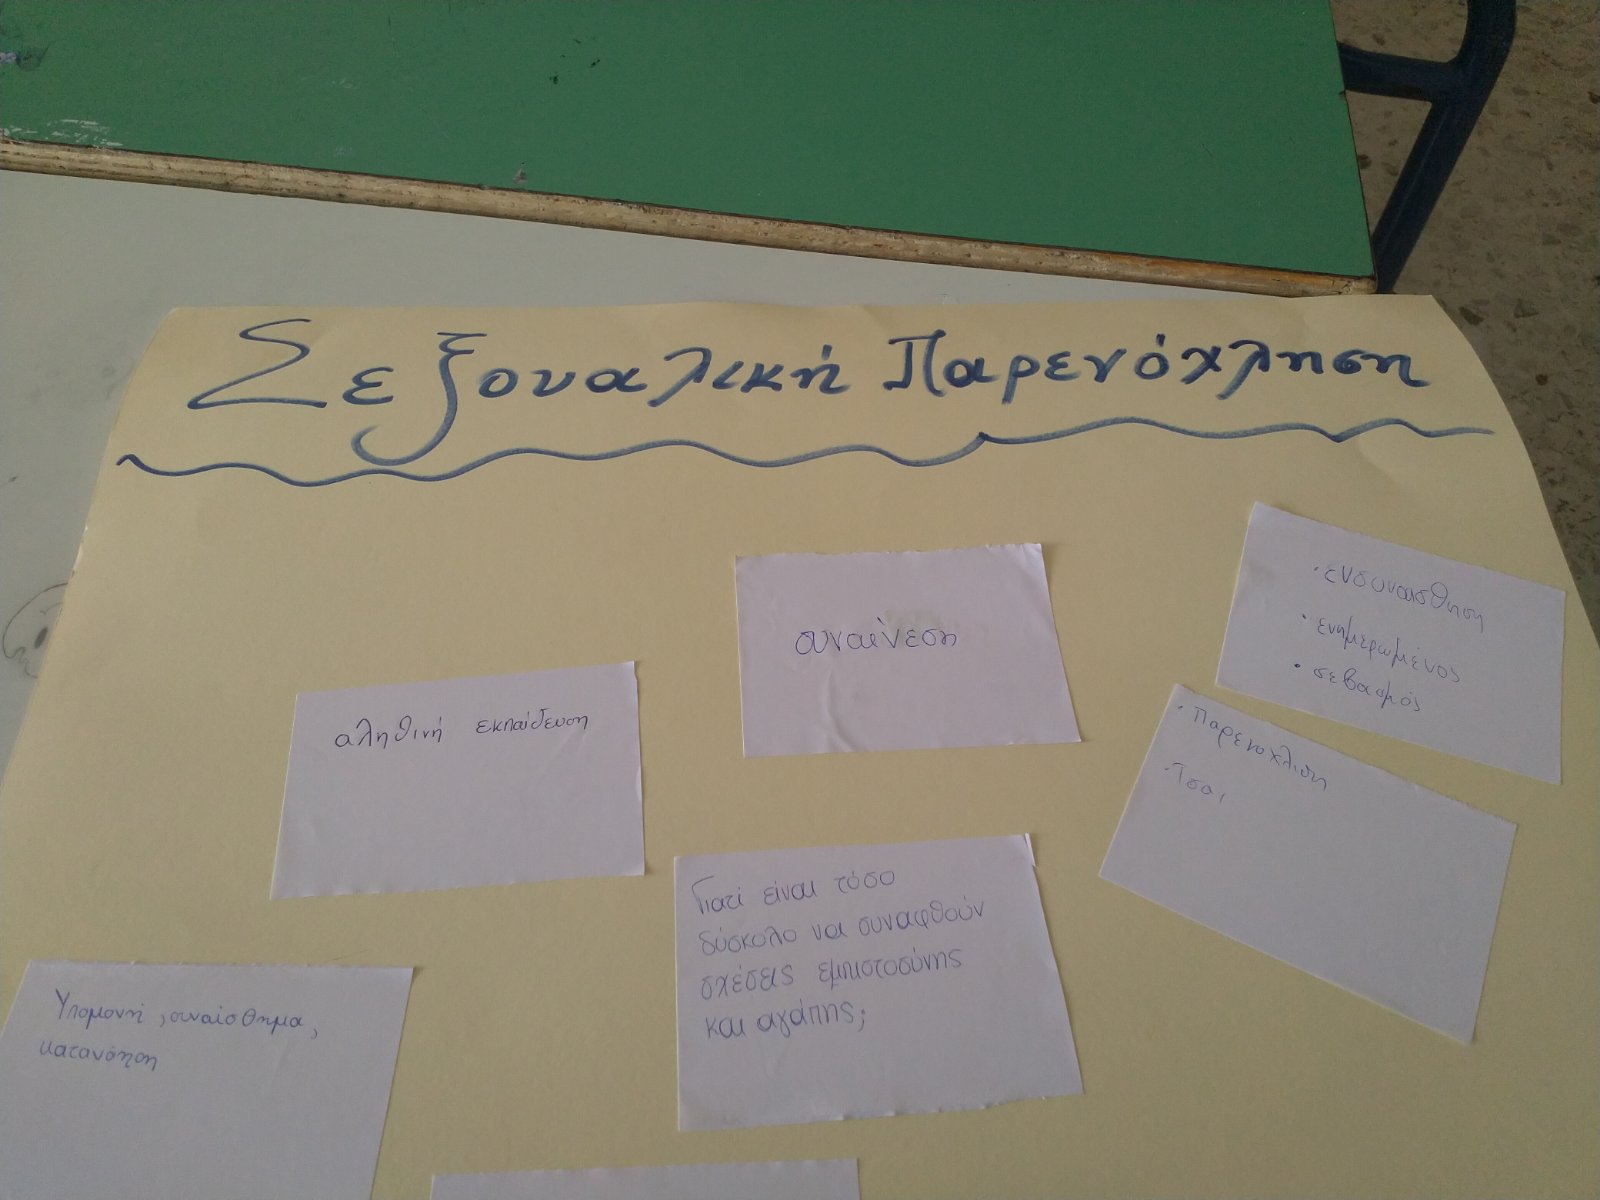 Σεξουαλική Παρενόχληση
συναίνεση
• ενσυναίσθηση
• ενημερωμένος
• σεβασμός
αληθινή εκπαίδευση
• Παρενοχλιση
Γιατί είναι τόσο
δύσκολο να συναφθούν
σχέσεις εμπιστοσύνης
και αγάπης;
Υπομονή, συναίσθημα,
κατανόηση